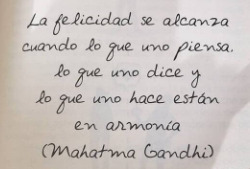 La felicidad se alcanza
cuando lo que uno piensa,
lo que uno dice y
lo que uno hace están
en armonía
(Mahatma Gandhi)